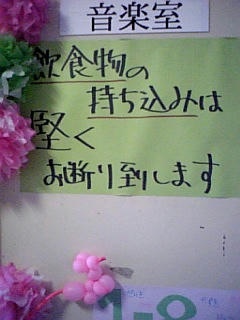 音楽室
飲食物の
持ち込みは
堅く
お断り到します